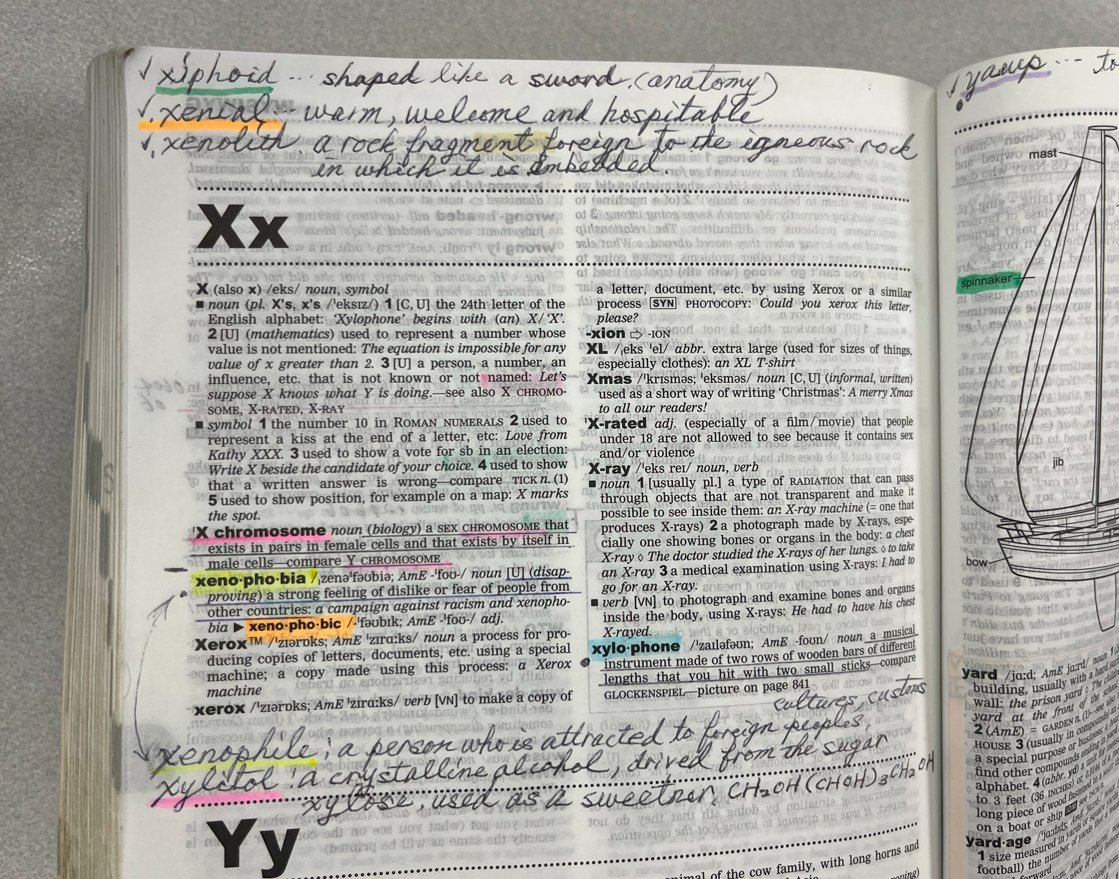 ✓ xiphoid ... shaped like a sword. (anatomy)
✓. xenial .. warm, welcome and hospitable
✓. xenolith a rock fragment foreign to the igneous rock
in which it is embedded.
Xx
X (also x) /eks/ noun, symbol
■ noun (pl. X's, x's /'eksɪz/) 1 [C, U] the 24th letter of the
English alphabet: 'Xylophone' begins with (an) X/'X'.
2 [U] (mathematics) used to represent a number whose
value is not mentioned: The equation is impossible for any
value of x greater than 2. 3 [U] a person, a number, an
influence, etc. that is not known or not named: Let's
suppose X knows what Y is doing.—see also X CHROMO-
SOME, X-RATED, X-RAY
■ symbol 1 the number 10 in ROMAN NUMERALS 2 used to
represent a kiss at the end of a letter, etc: Love from
Kathy XXX. 3 used to show a vote for sb in an election:
Write X beside the candidate of your choice. 4 used to show
that a written answer is wrong—compare TICK n. (1)
5 used to show position, for example on a map: X marks
the spot.
'X chromosome noun (biology) a SEX CHROMOSOME that
exists in pairs in female cells and that exists by itself in
male cells—compare Y CHROMOSOME
xeno·pho·bia /ˌzenə'fəʊbiə; AmE -'foʊ-/ noun [U] (disap-
proving) a strong feeling of dislike or fear of people from
other countries: a campaign against racism and xenopho-
bia ▶ xeno·pho·bic /-'fəʊbɪk; AmE -'foʊ-/ adj.
Xerox™ /'zɪərɒks; AmE 'zɪrɑːks/ noun a process for pro-
ducing copies of letters, documents, etc. using a special
machine; a copy made using this process: a Xerox
machine
xerox /'zɪərɒks; AmE 'zɪrɑːks/ verb [VN] to make a copy of
a letter, document, etc. by using Xerox or a similar
process SYN PHOTOCOPY: Could you xerox this letter,
please?
-xion ⇨ -ION
XL /ˌeks 'el/ abbr. extra large (used for sizes of things,
especially clothes): an XL T-shirt
Xmas /'krɪsməs; 'eksməs/ noun [C, U] (informal, written)
used as a short way of writing 'Christmas': A merry Xmas
to all our readers!
'X-rated adj. (especially of a film/movie) that people
under 18 are not allowed to see because it contains sex
and/or violence
X-ray /'eks reɪ/ noun, verb
■ noun 1 [usually pl.] a type of RADIATION that can pass
through objects that are not transparent and make it
possible to see inside them: an X-ray machine (= one that
produces X-rays) 2 a photograph made by X-rays, espe-
cially one showing bones or organs in the body: a chest
X-ray ◊ The doctor studied the X-rays of her lungs. ◊ to take
an X-ray 3 a medical examination using X-rays: I had to
go for an X-ray.
■ verb [VN] to photograph and examine bones and organs
inside the body, using X-rays: He had to have his chest
X-rayed.
xylo·phone /'zaɪləfəʊn; AmE -foʊn/ noun a musical
instrument made of two rows of wooden bars of different
lengths that you hit with two small sticks—compare
GLOCKENSPIEL—picture on page 841
cultures, customs
xenophile; a person who is attracted to foreign peoples,
xylitol: a crystalline alcohol, drived from the sugar
xylose, used as a sweetner. CH₂OH(CHOH)₃CH₂OH
Yy
animal of the cow family, with long horns and
✓ yawp ... to
mast
spinnaker
jib
bow
yard /jɑːd; AmE jɑːrd/ noun
building, usually with a
wall: the prison yard
yard at the front of the
2 (AmE) = GARDEN
HOUSE 3 (usually in compounds)
a special purpose or business
find other compounds
alphabet. 4 (abbr. yd) a
to 3 feet (36 INCHES) or
long piece of wood
on a boat or ship
yard·age
1 size measured in yards
football) the number of
forward